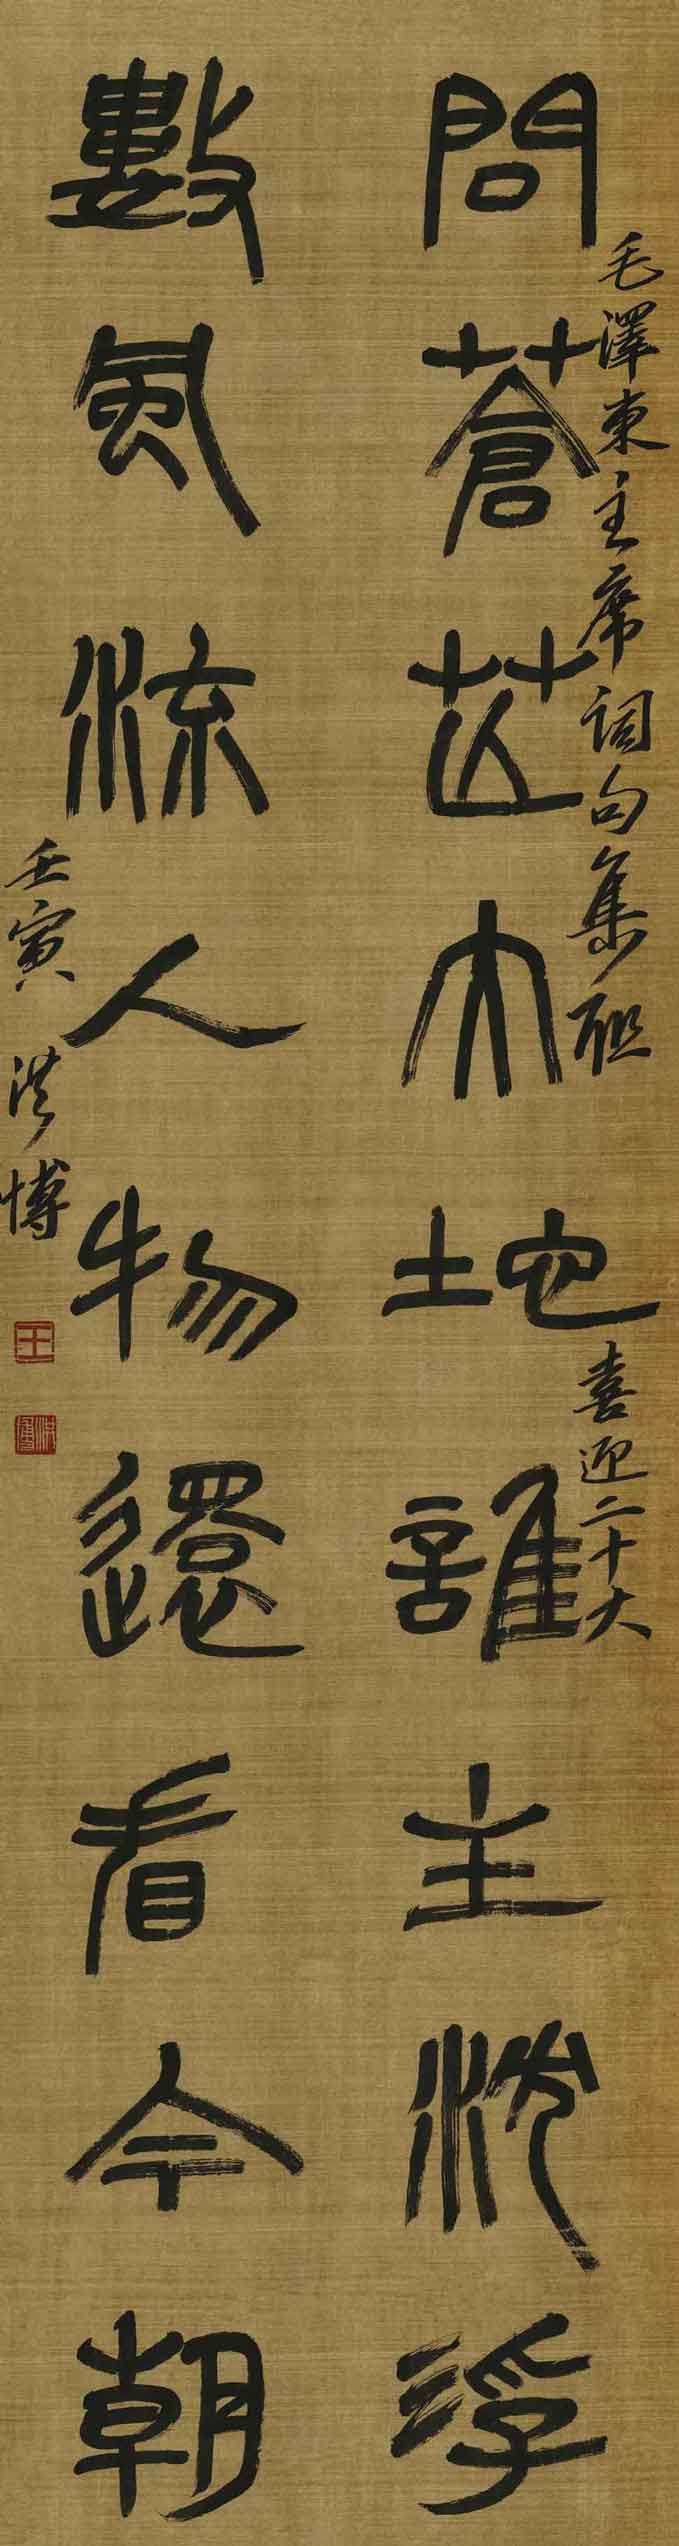 毛澤東主席詞句集聯 喜迎二十大
問蒼芒大地誰主沈浮
數風流人物還看今朝
壬寅 洪博
王
洪博